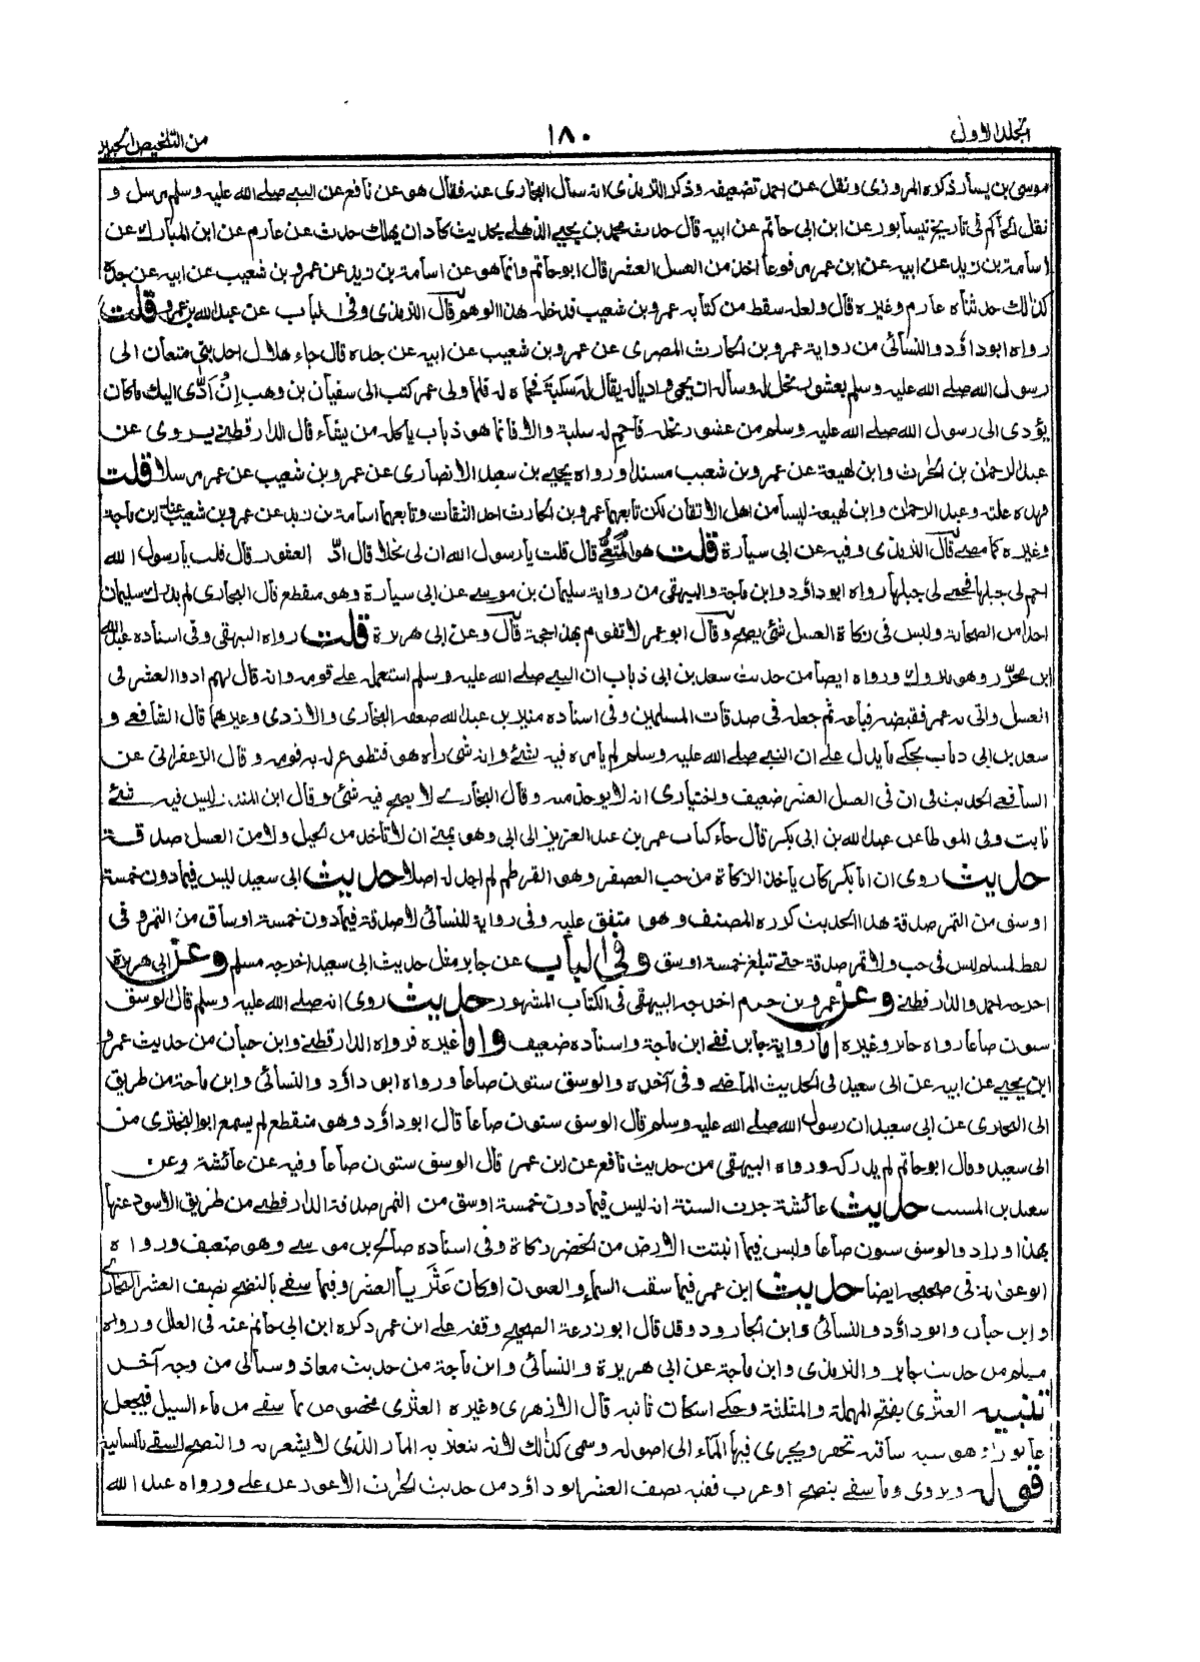 المجلد الاول ١٨٠ من التلخيص الحبير
موسى بن يسار ذكره المروزى ونقل عن احمد تضعيفه وذكر الترمذى انه سأل البخارى عنه فقال هو عن نافع عن النبى صلى الله عليه وسلم مرسل و
نقل الحاكم فى تاريخ نيسابور عن ابن ابى حاتم عن ابيه قال حدث محمد بن يحيى الذهلى بحديث كاد ان يهلك حدث عن عارم عن ابن المبارك عن
اسامة بن زيد عن ابيه عن ابن عمر مرفوعا اخذ من العسل العشر قال ابو حاتم وانما هو عن اسامة بن زيد عن عمرو بن شعيب عن ابيه عن جده
كذلك حدثناه عارم وغيره قال ولعله سقط من كتابه عمرو بن شعيب فدخله هذا الوهم قال الترمذى وفى الباب عن عبد الله بن عمرو قلت
رواه ابو داؤد والنسائى من رواية عمرو بن الحارث المصرى عن عمرو بن شعيب عن ابيه عن جده قال جاء هلال احد بنى متعان الى
رسول الله صلى الله عليه وسلم بعشور نخل له وسأله ان يحمى واديا له يقال له سلبة فحماه له فلما ولى عمر كتب الى سفيان بن وهب إن أدّى اليك ما كان
يؤدى الى رسول الله صلى الله عليه وسلم من عشور نخله فاحم له سلبة والا فانما هو ذباب يأكله من يشاء قال الدارقطنى يروى عن
عبد الرحمن بن الحرث وابن لهيعة عن عمرو بن شعيب مسندا ورواه يحيى بن سعيد الانصارى عن عمرو بن شعيب عن عمر مرسلا قلت
فهذه علته وعبد الرحمان وابن لهيعة ليسا من اهل الاتقان لكن تابعهما عمرو بن الحارث احد الثقات وتابعهما اسامة بن زيد عن عمرو بن شعيب عند ابن ماجة
وغيره كما مضى قال الترمذى وفيه عن ابى سيارة قلت هو المتعى قال قلت يا رسول الله ان لى نحلا قال ادّ العشور قال قلت يا رسول الله
احم لى جبلها فحمى لى جبلها رواه ابو داؤد وابن ماجة والبيهقى من رواية سليمان بن موسى عن ابى سيارة وهو منقطع قال البخارى لم يدرك سليمان
احدا من الصحابة وليس فى زكاة العسل شئ يصح وقال ابو عمر لا تقوم بهذا حجة قال وعن ابى هريرة قلت رواه البيهقى وفى اسناده عبد الله
ابن محرّر وهو متروك ورواه ايضا من حديث سعد بن ابى ذباب ان النبى صلى الله عليه وسلم استعمله على قومه وانه قال لهم ادوا العشر فى
العسل واتى به عمر فقبضه فباعه ثم جعله فى صدقات المسلمين وفى اسناده منير بن عبد الله ضعفه البخارى والازدى وغيرهما قال الشافعى و
سعد بن ابى ذباب يحكى ما يدل على ان النبى صلى الله عليه وسلم لم يأمره فيه بشئ وانه شئ رآه هو فتطوع له به قومه وقال الزعفرانى عن
الشافعى الحديث فى ان فى العسل العشر ضعيف واختيارى انه لا يوخذ منه وقال البخارى لا يصح فيه شئ وقال ابن المنذر ليس فيه شئ
ثابت وفى الموطا عن عبد الله بن ابى بكر قال جاء كتاب عمر بن عبد العزيز الى ابى وهو بمنى ان لا تاخذ من الخيل ولا من العسل صدقة
حديث روى ان ابا بكر كان ياخذ الزكاة من حب العصفر وهو القرطم لم اجد له اصلا حديث ابى سعيد ليس فيما دون خمسة
اوسق من التمر صدقة هذا الحديث كرره المصنف وهو متفق عليه وفى رواية للنسائى لا صدقة فيما دون خمسة اوساق من التمر و فى
لفظ لمسلم ليس فى حب ولا تمر صدقة حتى تبلغ خمسة اوسق وفى الباب عن جابر مثل حديث ابى سعيد اخرجه مسلم وعن ابى هريرة
اخرجه احمد والدارقطنى وعن عمرو بن حزم اخرجه البيهقى فى الكتاب المشهور حديث روى انه صلى الله عليه وسلم قال الوسق
ستون صاعا رواه جابر وغيره اما رواية جابر ففى ابن ماجة واسناده ضعيف واما غيره فرواه الدارقطنى وابن حبان من حديث عمرو
ابن يحيى عن ابيه عن ابى سعيد فى الحديث الماضى وفى آخره والوسق ستون صاعا ورواه ابو داؤد والنسائى وابن ماجة من طريق
ابى البخترى عن ابى سعيد ان رسول الله صلى الله عليه وسلم قال الوسق ستون صاعا قال ابو داؤد وهو منقطع لم يسمع ابو البخترى من
ابى سعيد وقال ابو حاتم لم يدركه ورواه البيهقى من حديث نافع عن ابن عمر قال الوسق ستون صاعا وفيه عن عائشة وعن
سعيد بن المسيب حديث عائشة جرت السنة انه ليس فيما دون خمسة اوسق من التمر صدقة الدارقطنى من طريق الاسود عنها
بهذا وزاد والوسق ستون صاعا وليس فيما انبتت الارض من الخضر زكاة وفى اسناده صالح بن موسى وهو ضعيف ورواه
ابو عوانة فى صحيحه ايضا حديث ابن عمر فيما سقت السماء والعيون او كان عَثَريا العشر وفيما سقى بالنضح نصف العشر البخارى
وابن حبان وابو داؤد والنسائى وابن الجارود وقد قال ابو زرعة الصحيح وقفه على ابن عمر ذكره ابن ابى حاتم عنه فى العلل ورواه
مسلم من حديث جابر والترمذى وابن ماجة عن ابى هريرة والنسائى وابن ماجة من حديث معاذ وسيأتى من وجه آخر
تنبيه العثرى بفتح المهملة والمثلثة وحكى اسكان ثانيه قال الازهرى وغيره العثرى مخصوص بما سقى من ماء السيل فيجعل
عاثورا وهو شبه ساقية تحفر ويجرى فيها الماء الى اصوله وسمى كذلك لانه يتعثر به المار الذى لا يشعر به والنضح السقى بالسانية
قوله ويروى وما سقى بنضح او غرب ففيه نصف العشر ابو داؤد من حديث الحرث الاعور عن على ورواه عبد الله